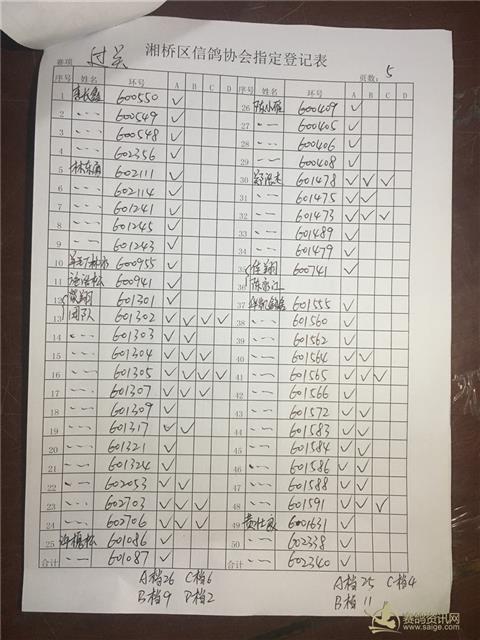 湘桥区信鸽协会指定登记表
赛项: 过关 页数: 5
序号 姓名 环号 A B C D 序号 姓名 环号 A B C D
1 600550 ✓ 26 陈小雁 600409 ✓
2 〃 600549 ✓ 27 〃 600405 ✓
3 〃 600548 ✓ 28 〃 600406 ✓
4 〃 602356 ✓ 29 〃 600408 ✓
5 602111 ✓ 30 601478 ✓ ✓ ✓
6 〃 602114 ✓ 31 〃 601475 ✓ ✓
7 〃 601241 ✓ 32 〃 601473 ✓ ✓ ✓
8 〃 601245 ✓ 33 〃 601489 ✓
9 〃 601243 ✓ 34 〃 601479 ✓
10 600955 ✓ 35 600741 ✓
11 600941 ✓ 36
12 601301 ✓ 37 601555 ✓
13 团队 601302 ✓ ✓ ✓ ✓ 38 〃 601560 ✓
14 〃 601303 ✓ ✓ 39 〃 601562 ✓
15 〃 601304 ✓ ✓ ✓ 40 〃 601564 ✓ ✓
16 〃 601305 ✓ ✓ ✓ ✓ 41 〃 601565 ✓ ✓ ✓
17 〃 601307 ✓ ✓ ✓ 42 〃 601566 ✓
18 〃 601309 ✓ 43 〃 601572 ✓ ✓
19 〃 601317 ✓ ✓ 44 〃 601583 ✓ ✓
20 〃 601321 ✓ 45 〃 601584 ✓ ✓
21 〃 601324 ✓ 46 〃 601586 ✓ ✓
22 〃 602053 ✓ ✓ 47 〃 601588 ✓ ✓
23 〃 602703 ✓ ✓ ✓ 48 〃 601591 ✓ ✓ ✓
24 〃 602706 ✓ ✓ ✓ 49 6001631 ✓
25 601086 ✓ 50 〃 602338 ✓
合计 〃 601087 ✓ 合计 〃 602340 ✓
A档26 C档6 A档25 C档4
B档9 D档2 B档11
赛鸽资讯网
www.saige.com